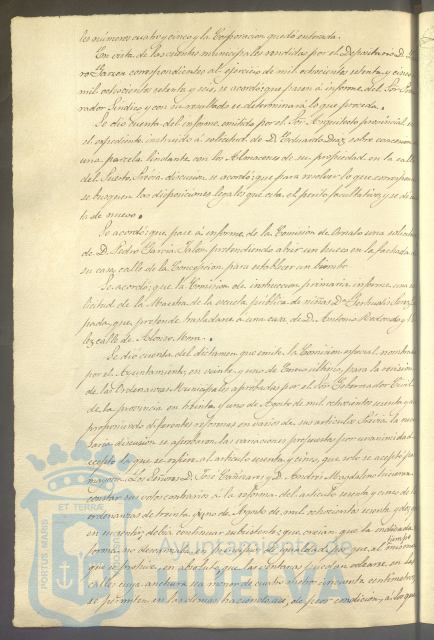 los números cuatro y cinco y la Corporacion quedó enterada.
En vista de las cuentas municipales rendidas por el Depositario D.
Garcia correspondientes al ejercicio de mil ochocientos setenta y cinco
mil ochocientos setenta y seis, se acordó: que pasen á informe del Sor
rador Síndico y con su resultado se determinará lo que proceda.
Se dio cuenta del informe emitido por el Sor Arquitecto provincial en
el espediente instruido á solicitud de D. Eduardo Diaz sobre concesion
una parcela lindante con los Almacenes de su propiedad en la calle
del Puerto. Prévia discusion se acordó: que para resolver lo que corresponda
se busquen las disposiciones legales que cita el perito facultativo y se dé
ta de nuevo.
Se acordó: que pase á informe de la Comision de Ornato una solicitud
de D. Pedro Garcia Jalon pretendiendo abrir un hueco en la fachada de
su casa, calle de la Concepcion para establecer un
Se acordó: que la Comision de instruccion primaria informe una so
licitud de la Maestra de la escuela pública de niñas Da Gertrudis
pada, que pretende trasladarse á una casa de D. Antonio
calle de Alonso Mora.
Se dió cuenta del dictamen que emite la Comision especial nombrada
por el Ayuntamiento en veinte y uno de Enero último, para la revision
de las Ordenanzas Municipales aprobadas por el Sor Gobernador Civil
de la provincia en treinta y uno de Agosto de mil ochocientos sesenta y
proponiendo diferentes reformas en varios de sus articulos. Prévia la nece
saria discusion se aprobaron las variaciones propuestas por unanimidad
escepto la que se refiere al articulo sesenta y cinco, que solo se aceptó por
mayoria. Los Señores D. José Cañizares y D. Andrés Magdaleno hicieron
constar sus votos contrarios á la reforma del articulo sesenta y cinco de las
ordenanzas de treinta y uno de Agosto de mil ochocientos sesenta y
en su sentir debia continuar subsistente; que creian que la indicada
forma no descansaba en principios de equidad, puesto que, al mismo tiempo
que se prohibe, en absoluto, que las ventanas puedan volarse, en las
calles cuya anchura sea menor de cuatro metros cincuenta centímetros,
se permiten en las demas haciendo asi, de peor condicion, á los que
PORTUS MARIS
ET TERRÆ
CUSTODIA
Ayuntamiento de
HUELVA